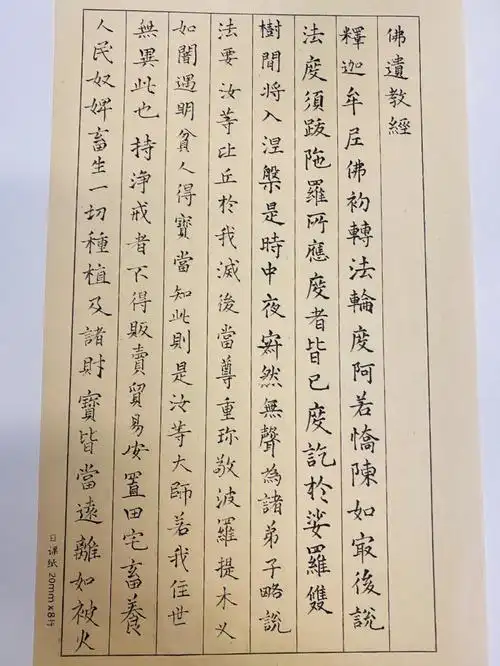 佛遺教經
釋迦牟尼佛初轉法輪度阿若憍陳如㝡後說
法度須跋陁羅所應度者皆已度訖於娑羅雙
樹間將入涅槃是時中夜寂然無聲為諸弟子略說
法要汝等比丘於我滅後當尊重珎敬波羅提木乂
如闇遇明貧人得寶當知此則是汝等大師若我住世
無異此也持淨戒者不得販賣貿易安置田宅畜養
人民奴婢畜生一切種植及諸財寶皆當遠離如被火
日课纸 20mm x8行